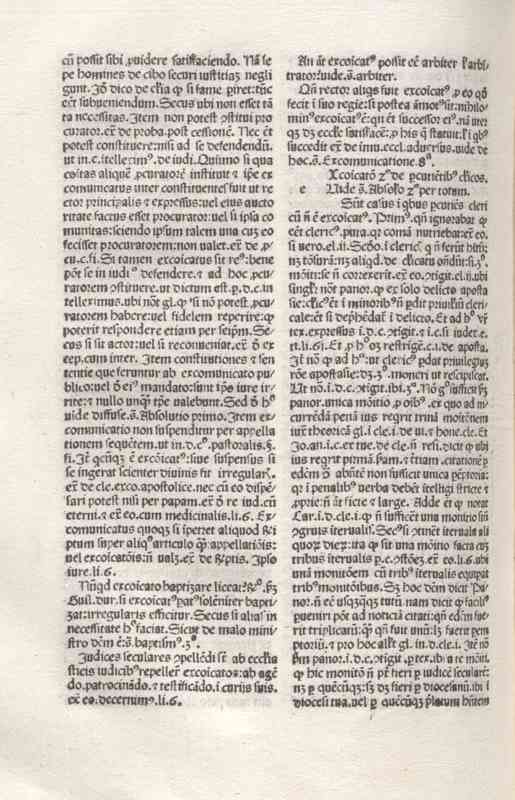 cū possit sibi ꝓuidere satisfaciendo. Nā se
pe homines de cibo securi iustitiaʒ negli
gunt. Jō dico de clīa ꝙ si fame piret: tūc
eēt subueniendum. Secus ubi non esset tā
ta necessitas. Item non potest ꝯstitui pro
curator. ex̄ de proba. post cessionē. Nec ēt
potest constituere: nisi ad se defendendū.
ut in.c.itellexim⁹. de iudi. Quīmo si qua
cōitas aliquē ꝓcuratorē instituit & ip̄e ex
comunicatus inter constituentes fuit ut re
ctor principalis & expressus: uel eius aucto
ritate factus esset procurator: uel si ipsa co
munitas: sciendo ipsum talem una cuʒ eo
fecisset procuratorem: non ualet. ex̄ de ꝓ
cu.c.fi. Si tamen excoicatus sit re⁹: bene
pōt se in iudi⁰ defendere. & ad hoc .ꝓcu
ratorem ꝯstituere. ut dictum est. ꝑ.d.c.in
telleximus. ubi nōt gl. ꝙ si nō potest .ꝓcu
ratorem habere: uel fidelem reperire: ꝙ
poterit respondere etiam per seip̄m. Se
cus si sit actor: uel si reconueniat. ex̄ ō ex
cep.cum inter. Item constitutiones & sen
tentie que feruntur ab excomunicato pu
blico: uel ō ei⁹ mandato: sunt ip̄o iure ir
rite: & nullo unq̄ tp̄e ualebunt. Sed ō h⁰
uide diffuse. s̄. Absolutio primo. Item ex
comunicatio non suspenditur per appella
tionem sequētem. ut in.d.c⁰. pastoralis. §.
fi. Jt̄ ꝗcūqʒ ē excoicat⁹: siue suspensus si
se ingerat scienter diuinis fit irregular̄.
ex̄ de cle.exco. apostolice. nec cū eo dispē
sari potest nisi per papam. ex̄ ō re iud. cū
eterni. & ex̄ eo. cum medicinalis. li.6. Ex
comunicatus quoqʒ si īpetret aliquod &i
ptum super aliq⁰ articulo q̄ꝫ appellatiōis:
uel excoicatōis: n̄ ualʒ. ex̄ de &ptis. Jpso
iure. li.6.
Nūqd excoicato baptizare liceat: &c⁰. pʒ
Guil. dur. si excoicat⁹ pat⁹ solēniter bapti
zat: irregularis efficitur. Secus si alias in
necessitate h⁰ faciat. Sicut de malo mini
stro dēm ē. s̄. baptism⁰.3⁰.
Judices seculares ꝯpellēdi sē ab ecclia
sticis iudicib⁹ repellere excoicatos: ab agē
do. patrocinādo. & testificādo. i curijs suis.
ex̄ eo. decernim⁹. li.6.
An āt excoicat⁹ possit ēē arbiter l̄ arbi
trator: uide. s̄. arbiter.
Qn̄ rector aliqs fuit excoicat⁹. ꝓ eo qō
fecit ī suo regie: si postea āmot⁹ sit: nihilo
min⁹ excoicat⁹ē: qn̄ ēt successor ei⁹. nā uter
qʒ dʒ eccłe satisfacē: ꝓ his q̄ statuit. l̄ i qb⁹
succedit. ex̄ de imu. eccl. aduersus. uide de
hoc. s̄. Excomunicatione.8⁰.
Xcoicatō z⁰ de ꝑcutiētib⁹ clicos.
e Uide s̄. Absolo z⁰ per totum.
Sūt casus i qbus ꝑcutiēs cleri
cū n̄ ē excoicat⁹. Prim⁹. qn̄ ignorabat ꝙ
eēt cleric⁹. puta. qr comā nutriebat. ex̄ eo.
si uero. el.ii. Scd̄o. i cleric⁹, q̄ n̄ ferūt hītū:
nʒ tōsurā: nʒ aliqd. de clicatu ondūt: si.3⁰.
mōiti: se n̄ correxerit. ex̄ eo. ꝯtigit. el.ii. ubi
singłr nōt panor. ꝙ ex solo delicto aposta
sie: clic⁹ ēt i minorib⁹ n̄ pdit priuilm̄ cleri
cale: ēt si dephēdat̄ i delicto. Et ad h⁰ ē
tex. expressus i.d.c. ꝯtigit. & i.c. si iudex. e.
tt.li.6. Et ꝓ h⁰ʒ restrīgē. c.i. de aposta.
Jt̄ nō q̄ ad h⁰: ut cleric⁹ pdat priuilegiuʒ
rōe apostasie: dʒ.3⁰. moneri ut resipiscat.
Ut nō.i.d.c. ꝯtigit. ibi.3⁰. Nō ḡ⁰ sufficit ßʒ
panor. unica mōitio ꝓ oib⁹. ex quo ad in
currēdā penā ius reqrit trinā mōitōnem
iuxt̄ theoricā gl. i cle.i. de ui. & hone. cle. Et
Jo. an. i c. ex tue. de cle. n̄ resi. dicit ꝙ ubi
ius reqrit pinnā. ßam. & tertiam. citationē ꝑ
edēm ō abūtē non sufficit unica ꝑemptoria:
qr i penalib⁹ uerba debēt itelligi stricte &
ꝓprie: n̄ āt ficte & large. Adde ēt ꝙ notat
Car. i.d. cle.i. ꝙ n̄ sufficēt una monitio siń
ꝯgruis iterualis. Sec⁹ si ꝯtinēt iterualā ali
quoꝝ dierꝝ: ita ꝙ sit una mōito facta cuʒ
tribus iterualis ꝑ.c. ꝯstōeʒ. ex̄ eo. li.6. ubi
unā monitōem cū trib⁹ iterualis equipat̄
trib⁹ monitōibus. Sʒ hoc dēm dicit Pa
nor. n̄ eē usqʒqʒ tutū. nam dicit ꝙ facili⁹
pueniri pōt ad noticiā citati: qn̄ edēm fue
rit triplicatū: q̄ꝫ qn̄ fuit unū: lʒ fuerit pem
ptoriū. & pro hoc alłr gl. in.d.cle.i. Jt̄ nō
ßm panor. i.d.c. ꝯtigit. ꝑ tex. ibi a te mōiti.
ꝙ hic monitō n̄ pt̄ fieri ꝑ iudicē seculare:
nʒ ꝑ quēcūqʒ: sʒ dʒ fieri ꝑ diocesanū. ibi i
diocesi tua. uel ꝑ quēcūqʒ platum hn̄tem